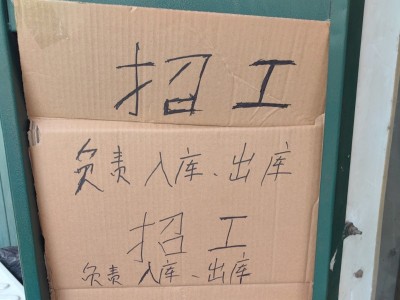 招工
负责入库、出库
招工
负责入库、出库